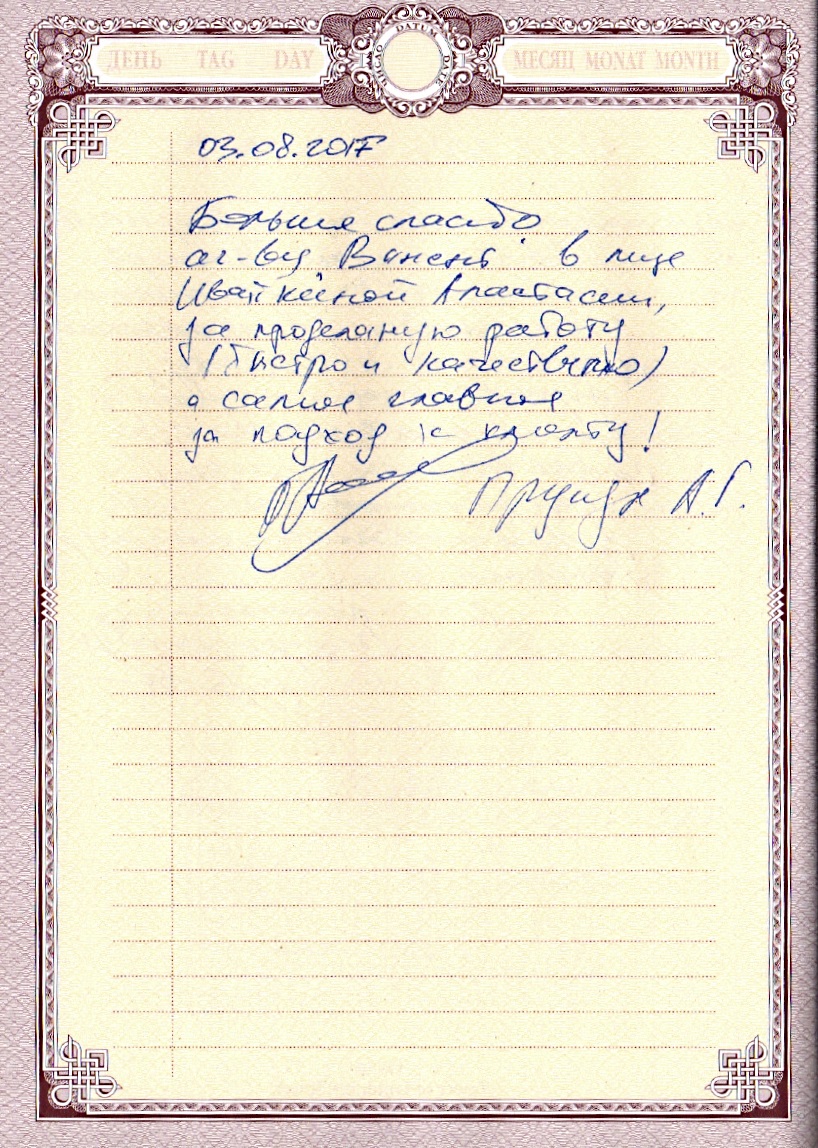 ДЕНЬ TAG DAY
ЧИСЛО DATUM DATE
МЕСЯЦ MONAT MONTH
03.08.2017
Большое спасибо
аг-ву Винсент в лице
Анастасии,
за проделаную работу
(быстро и качественно)
а самое главное
за подход к клиенту!
А.Г.